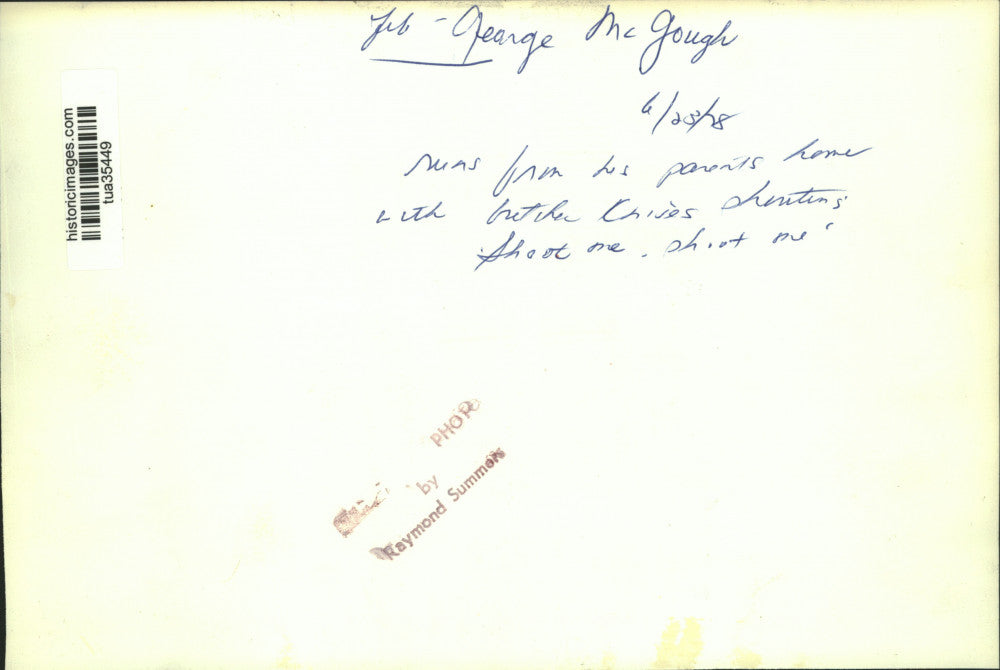 George McGough
6/28/78
runs from his parents home
with butcher knives shouting
"Shoot me, shoot me"
historicimages.com
tua35449
PHOTO
by
Raymond Summers